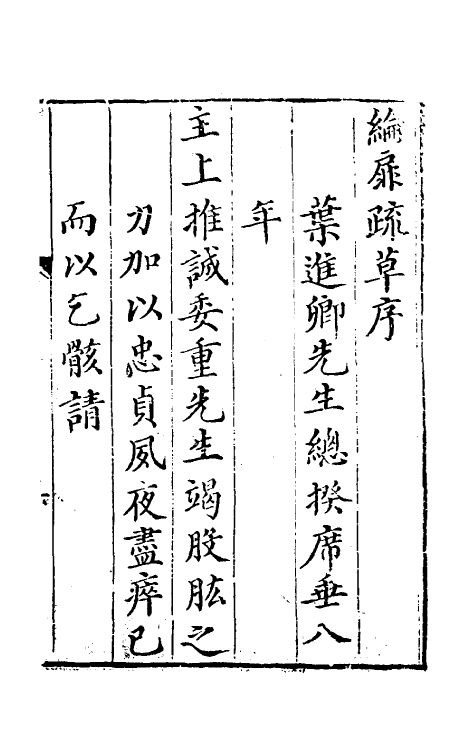 綸扉疏草序
葉進卿先生總揆席垂八
年
主上推誠委重先生竭股肱之
力加以忠貞夙夜盡瘁已
而以乞骸請